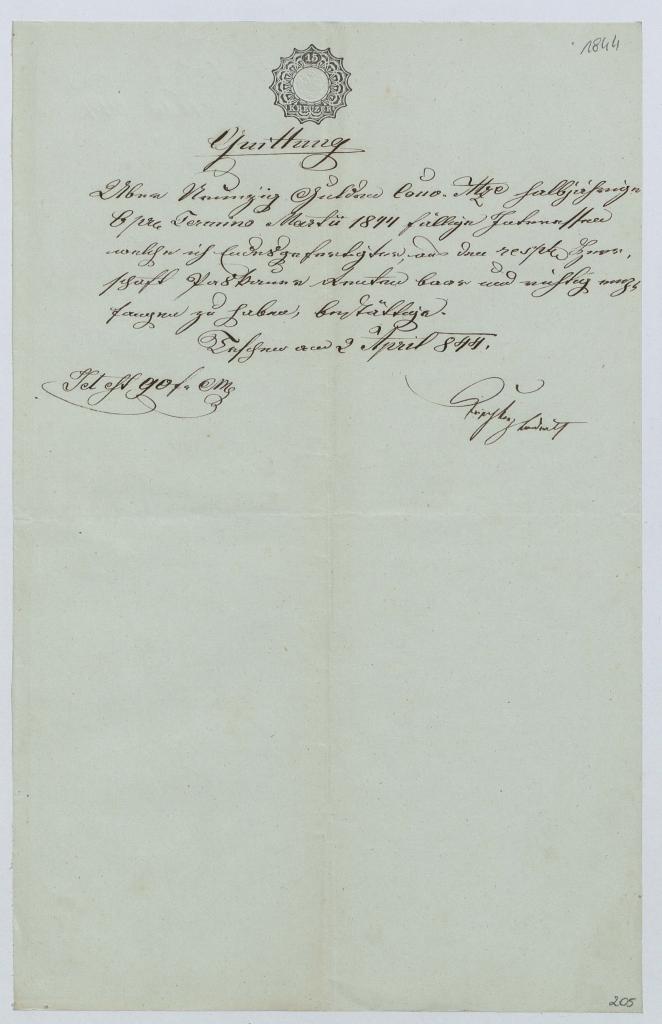 1844
15
KREUZER
Quittung
Über Neunzig Gulden Conv. Mze halbjährige
pro Termino Martii 1844 fällige Interessen
welche ich Endesgefertigter, aus den resp. Herr,
schaft Paskauer Renten baar und richtig emp,
fangen zu haben, bestättige.
Teschen am 2 April 844.
Id est 90 f. CM
205